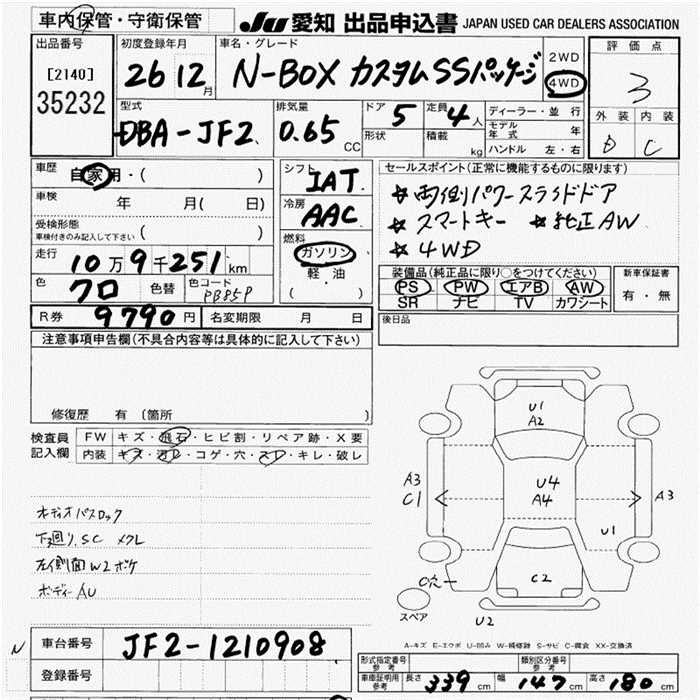 車内保管・守衛保管
JU 愛知 出品申込書 JAPAN USED CAR DEALERS ASSOCIATION
出品番号 初度登録年月 車名・グレード 評価点
[2140] 26 12月 N-BOX カスタムSSパッケージ 2WD 4WD 3
35232
型式 排気量 ドア 定員 ディーラー・並行 外装 内装
DBA-JF2 0.65 CC 5 4人 モデル年式 年
形状 積載 kg ハンドル 左・右 D C
車歴 自家用・( ) シフト IAT セールスポイント(正常に機能するものに限ります)
車検 年 月( 日) 冷房 AAC ☆両側パワースライドドア
受検形態 ( ) ☆スマートキー ☆純正AW
車検付きのみ記入して下さい 燃料 ガソリン ☆4WD
走行 10万9千251km 軽油 装備品(純正品に限り○をつけてください) 新車保証書
色 クロ 色替 色コード PB85P ( ) PS PW エアB AW 有・無
SR ナビ TV カワシート
R券 9790円 名変期限 月 日 後日品
注意事項申告欄(不具合内容等は具体的に記入して下さい)
修復歴 有(箇所 )
検査員 FW キズ・飛石・ヒビ割・リペア跡・X要
記入欄 内装 キズ・汚レ・コゲ・穴・スレ・キレ・破レ
U1
A2
A3 U4 A3
C1 A4
U1
C2
U2
スペア
オーディオパスロック
下廻り、SC メクレ
左側面W2ボケ
ボディーAU
A-キズ E-エクボ U-凹み W-補修跡 S-サビ C-腐食 XX-交換済
N 車台番号 JF2-1210908
登録番号
形式指定番号 参考 類別区分番号 参考
車庫証明用 参考 長さ 339cm 幅 147cm 高さ 180cm